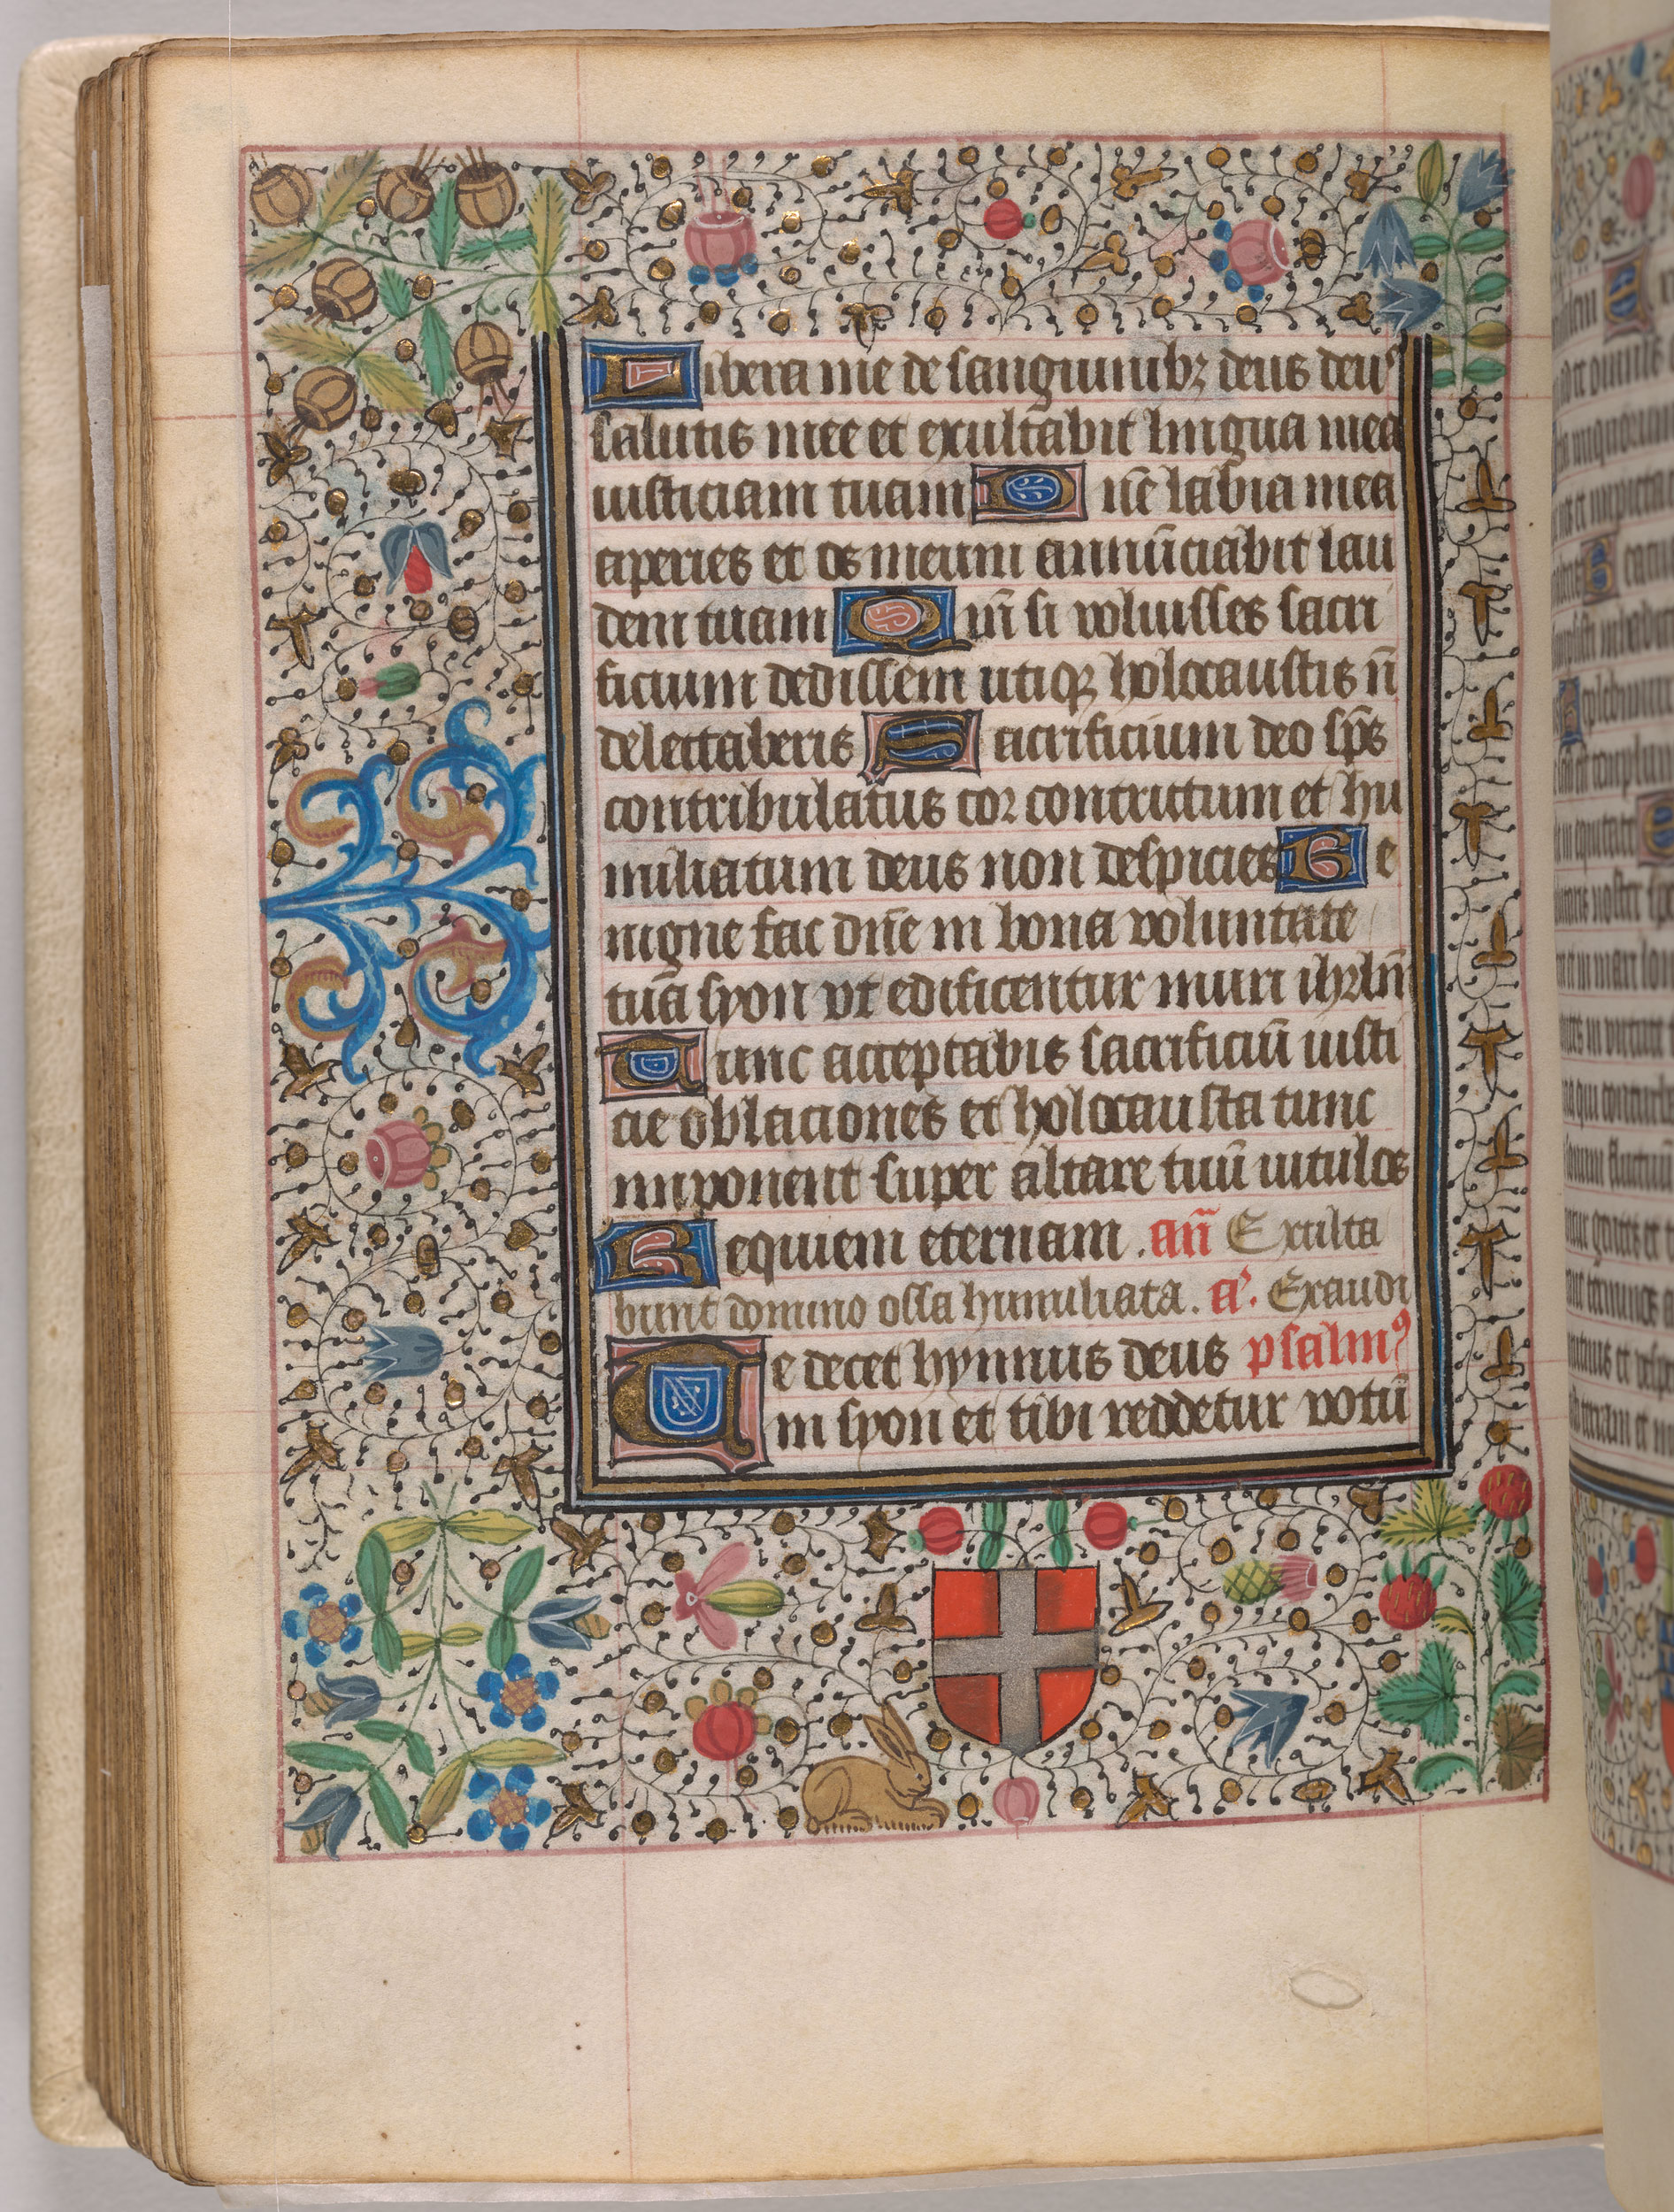 Libera me de sanguinibꝫ deus deuˢ
salutis mee et exultabit lingua mea
iusticiam tuam Dn̄e labia mea
aperies et os meum annūciabit lau
dem tuam Qm̄ si voluisses sacri
ficium dedissem utiqꝫ holocaustis n̄
delectaberis Sacrificium deo sp̄s
contribulatus cor contritum et hu
miliatum deus non despicies Be
nigne fac dn̄e in bona voluntate
tua syon vt edificentur muri ihrl̄m
Tunc acceptabis sacrificiū iusti
cie oblaciones et holocausta tunc
imponent super altare tuū vitulos
Requiem eternam. an̄ Exulta
bunt domino ossa humiliata. a. Exaudi
Te decet hymnus deus psalmꝰ
in syon et tibi reddetur votū